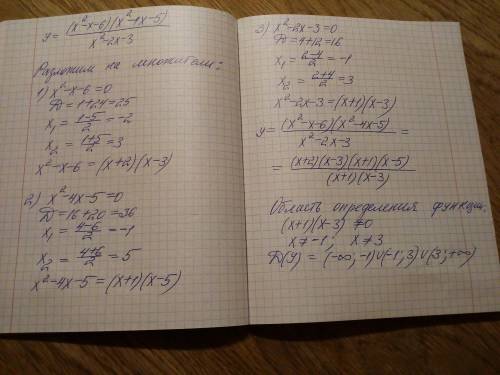 y = (x²-x-6)(x²-4x-5) / x²-2x-3
Разложим на множители:
1) x²-x-6=0
D=1+24=25
x₁ = 1-5/2 = -2
x₂ = 1+5/2 = 3
x²-x-6=(x+2)(x-3)
2) x²-4x-5=0
D=16+20=36
x₁ = 4-6/2 = -1
x₂ = 4+6/2 = 5
x²-4x-5=(x+1)(x-5)
3) x²-2x-3=0
D=4+12=16
x₁ = 2-4/2 = -1
x₂ = 2+4/2 = 3
x²-2x-3=(x+1)(x-3)
y = (x²-x-6)(x²-4x-5) / x²-2x-3 =
= (x+2)(x-3)(x+1)(x-5) / (x+1)(x-3)
Область определения функции.
(x+1)(x-3) ≠0
x≠-1; x≠3
D(y) = (-∞;-1)∪(-1;3)∪(3;+∞)